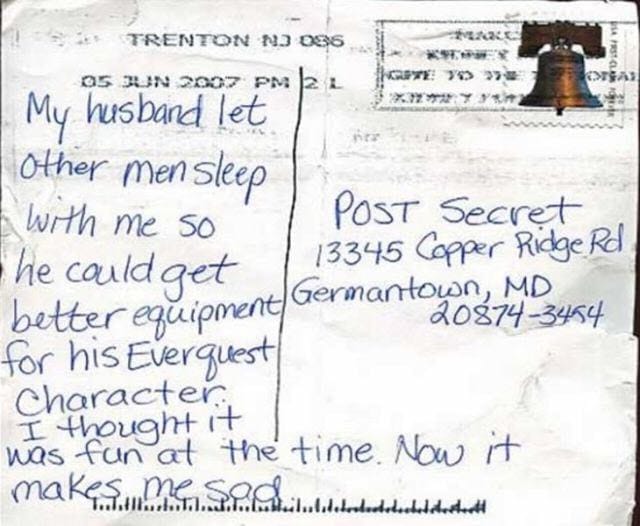 TRENTON NJ 086
05 JUN 2007 PM 2 L
My husband let
other men sleep
with me so
he could get
better equipment
for his Everquest
Character.
I thought it
was fun at the time. Now it
makes me sad.
POST Secret
13345 Copper Ridge Rd
Germantown, MD
20874-3454